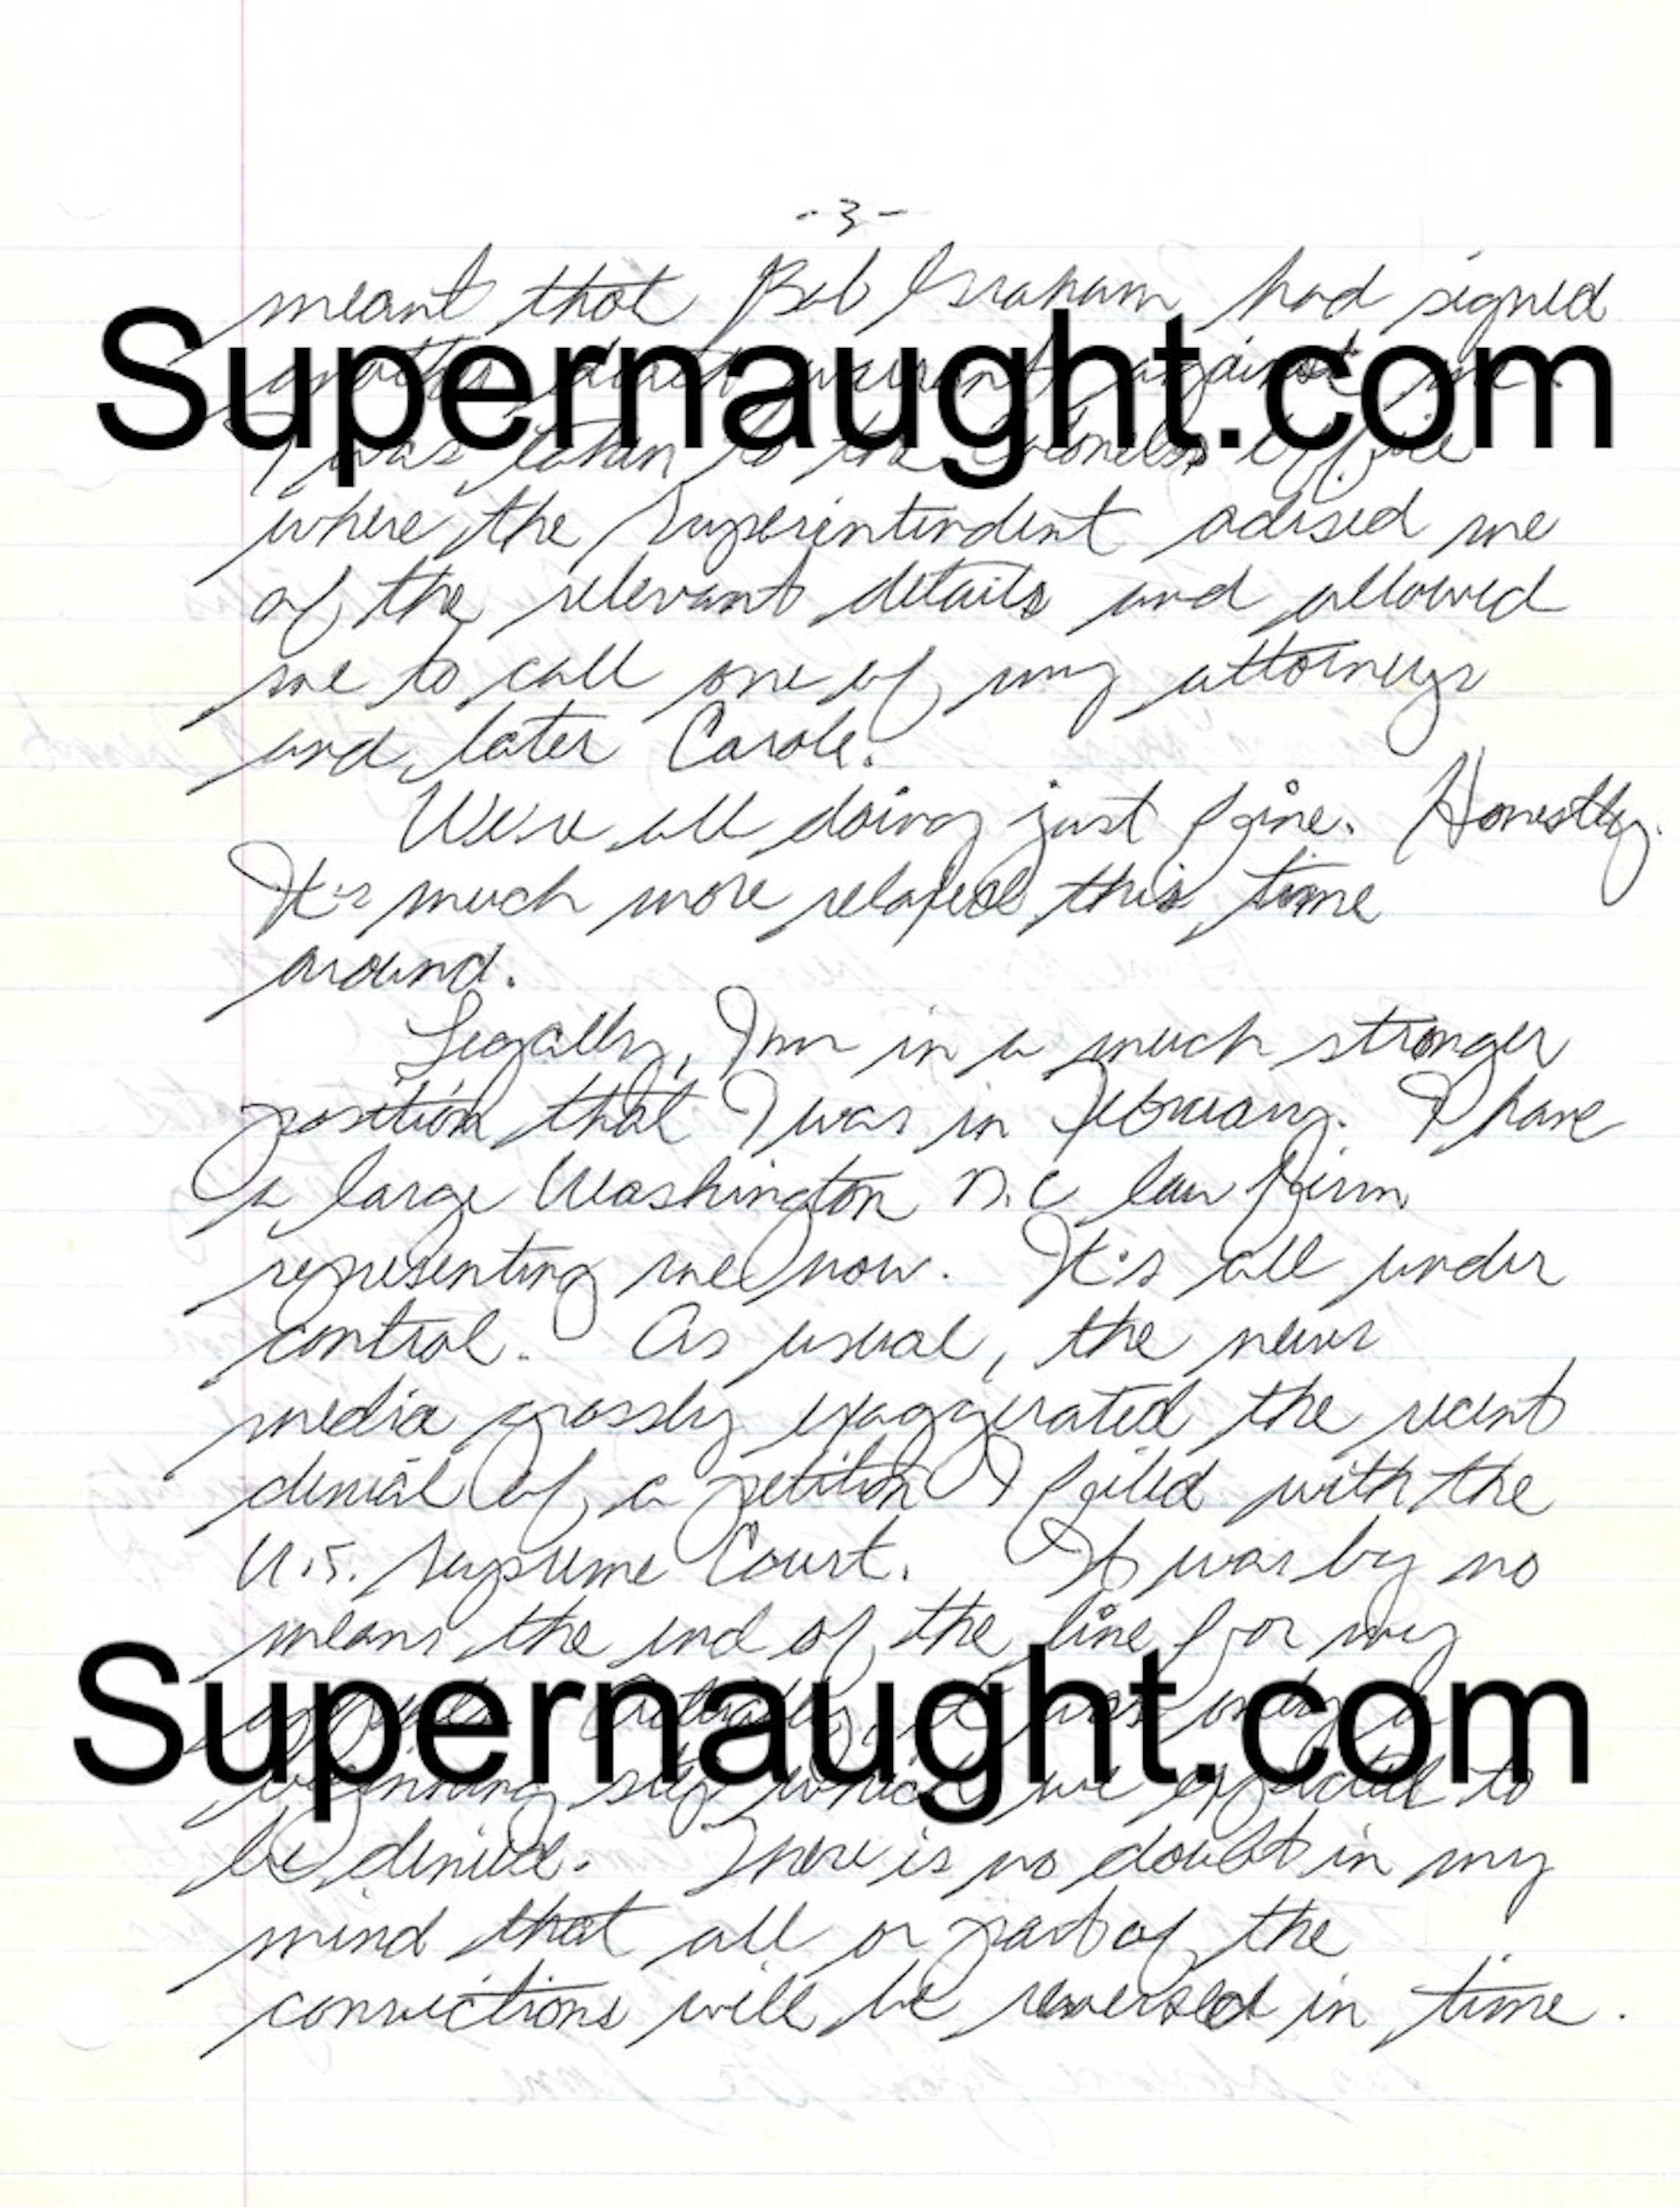 -3-
meant that Bob Graham had signed
Supernaught.com
another death warrant against me.
I was taken to the Colonel's office
where the Superintendent advised me
of the relevant details and allowed
me to call one of my attorneys
and, later Carole.
We're all doing just fine. Honestly.
It's much more relaxed this time
around.
Legally, I'm in a much stronger
position that I was in February. I have
a large Washington D.C law firm
representing me now. It's all under
control. As usual, the news
media grossly exaggerated the recent
denial of a petition I filed with the
U.S. Supreme Court. It was by no
means the end of the line for my
Supernaught.com
appeals. Actually, it was only a
beginning step which we expected to
be denied. There is no doubt in my
mind that all or part of the
convictions will be reversed in time.